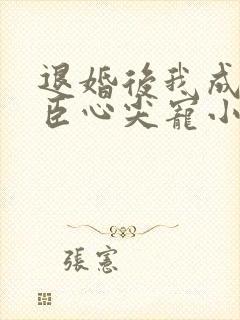 退婚後我成
臣心尖寵小
張憲